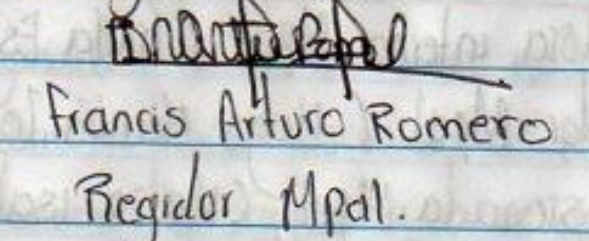 Francis Arturo Romero
Regidor Mpal.